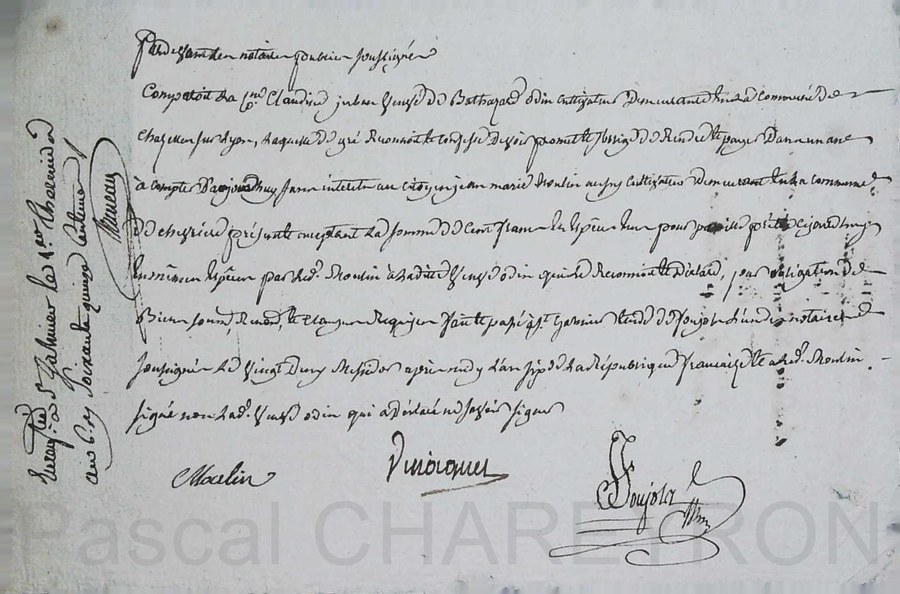 Pardevant les notaires publics soussignés
Comparoit la cne. Claudine veuve de Balthazard odin Cultivateur demeurante en la Commune de
chazelles sur Lyon, laquelle de gré Reconnoit et confesse devoir promet et s'oblige de Rendre et payer dans un an
à compter d'aujourd'huy sans interets au citoyen jean marie Moulin aussy Cultivateur demeurant en la commune
de présent et acceptant la somme de Cent francs en Espèces pour pareille prêtée cejourd'huy
en mêmes Espèces par led. Moulin à ladite veuve odin qui le Reconnoit et déclare, par obligation de
Biens soumis, Renond, et Clauses Requises fait et passé à St. de Soujols l'un des notaires
soussignés Le vingt deux Messidor après midy L'an six de La République française et a led. Moulin
signé non lad. veuve odin qui a déclaré ne savoir signer
Moulin
Soujols
Enreg. à St. Galmier le 1er. Thermidor
an 6. Rx soixante quinze centimes
Pascal CHARETRON